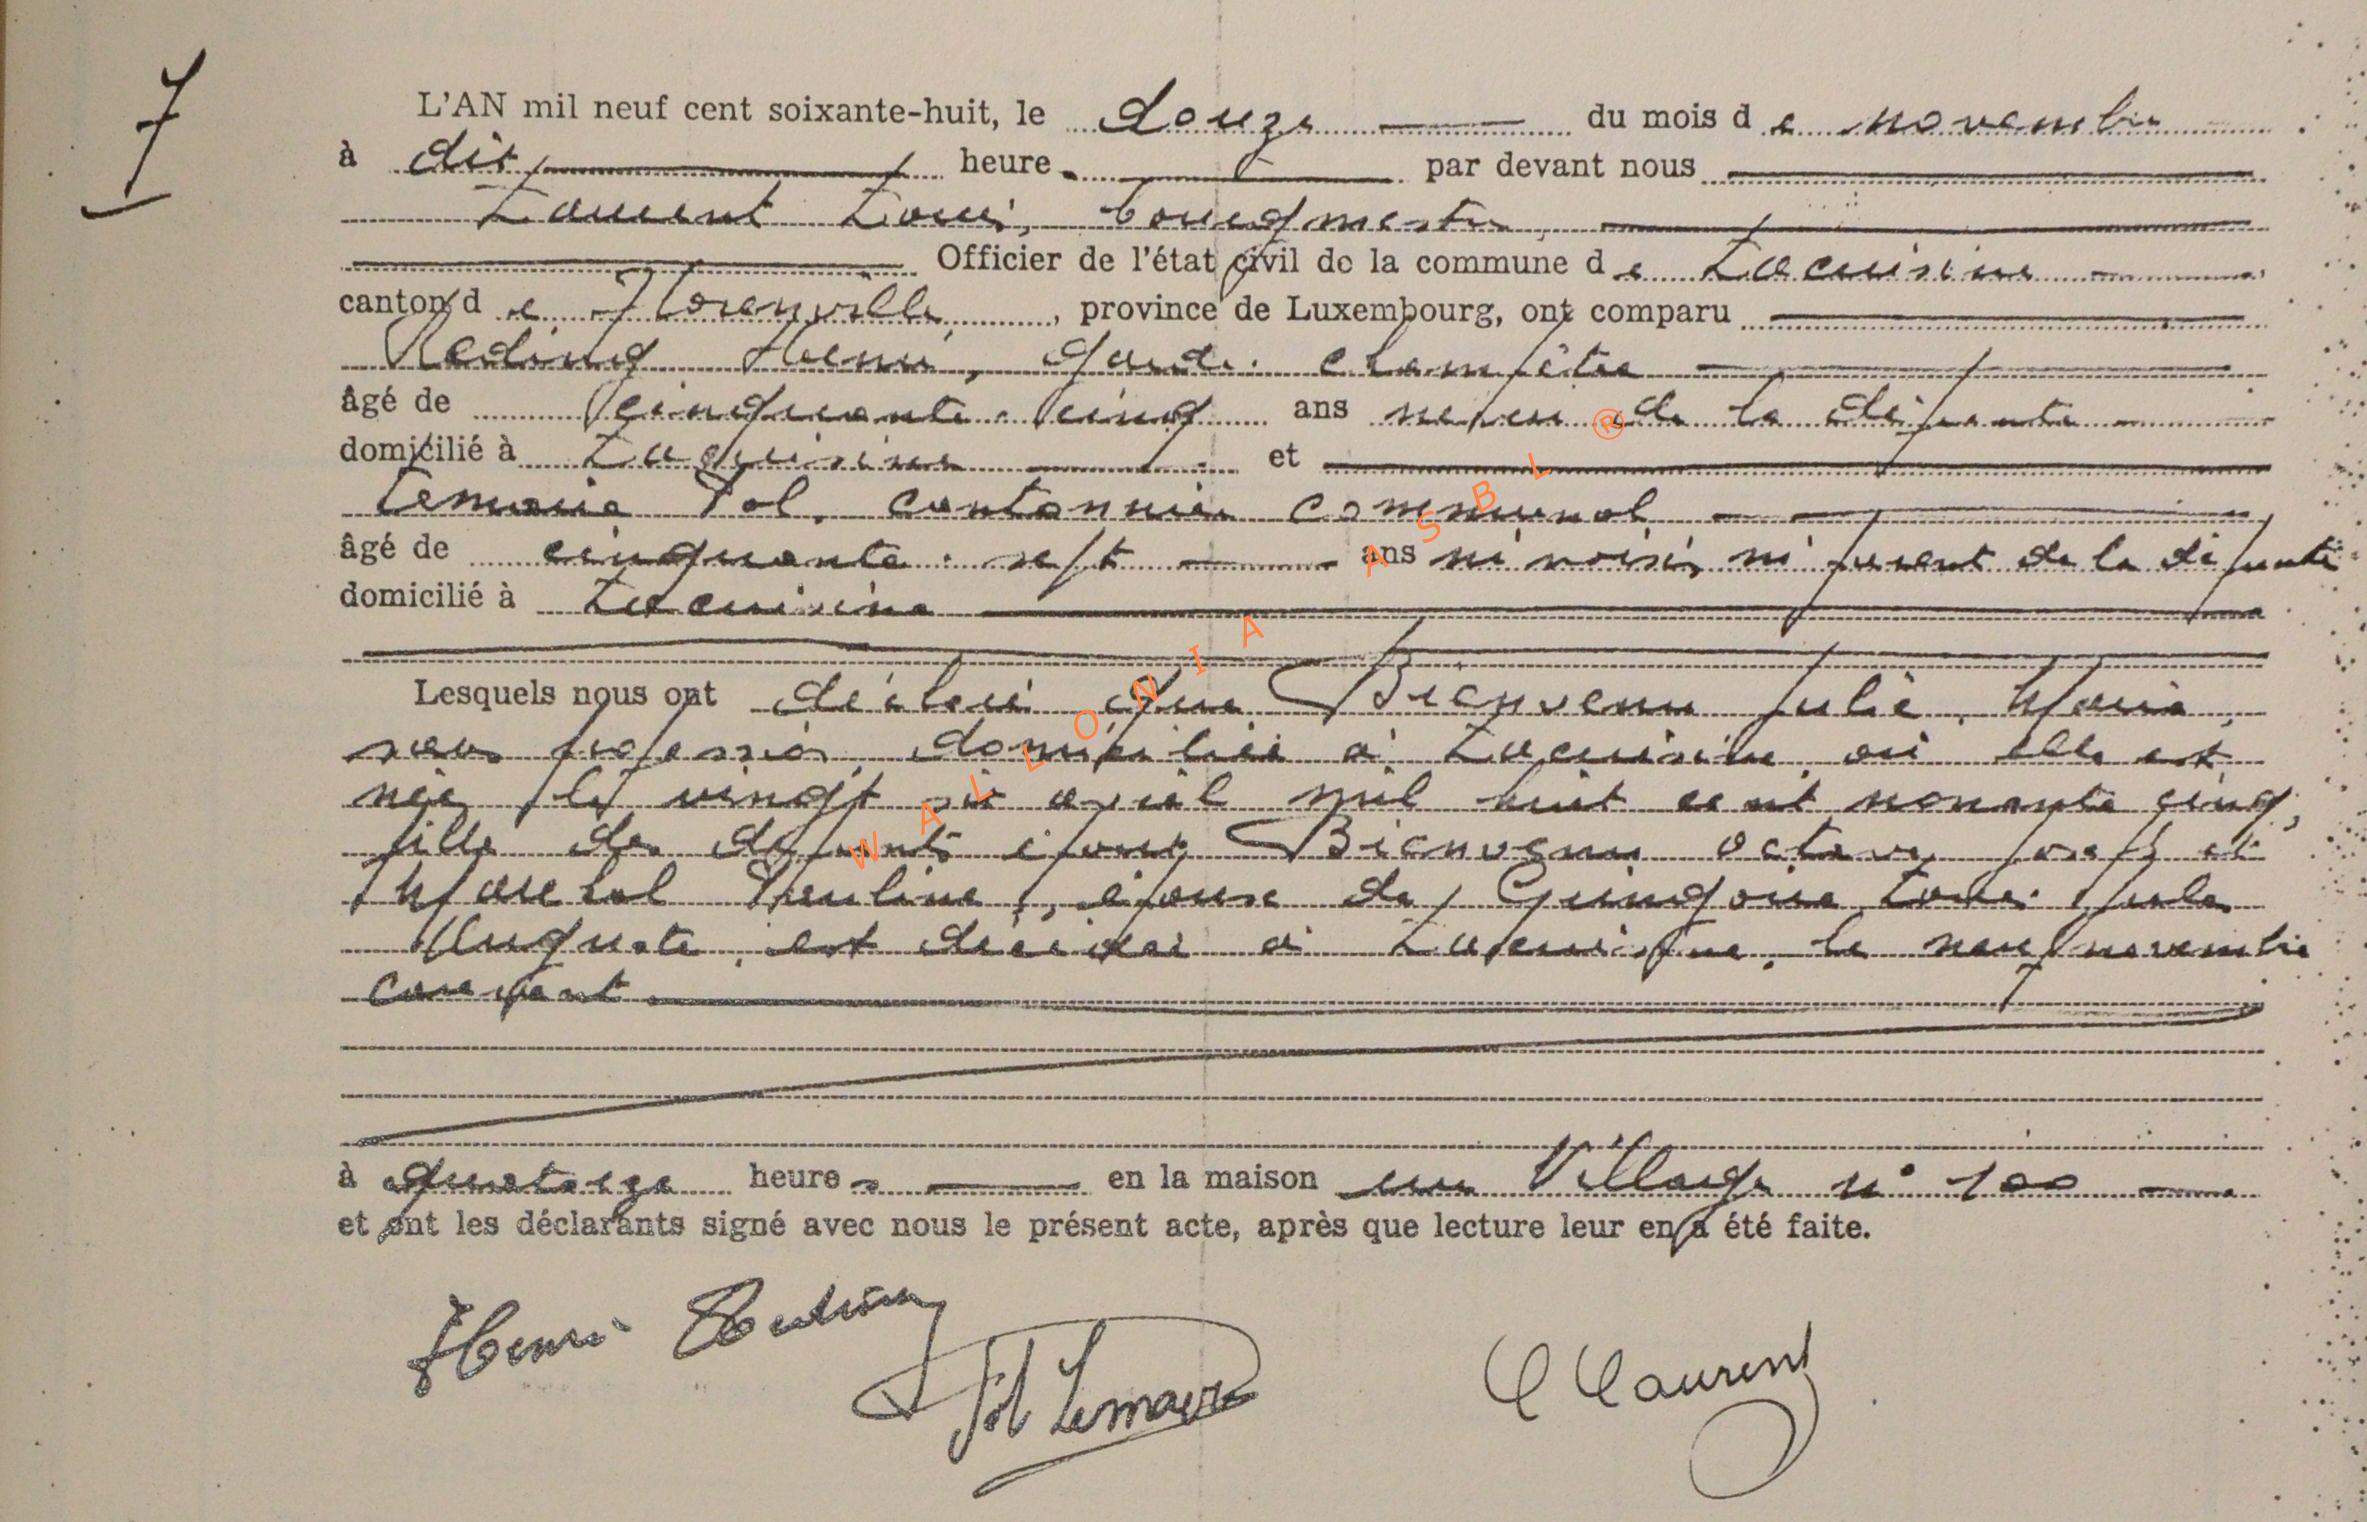 7
L'AN mil neuf cent soixante-huit, le douze du mois de novembre
à dix heures par devant nous
Laurent Louis, bourgmestre,
Officier de l'état civil de la commune de Lacuisine
canton de Florenville, province de Luxembourg, ont comparu
Reding Henri, garde-champêtre
âgé de cinquante-cinq ans neveu de la défunte
domicilié à Lacuisine et
Lemaire Pol, cantonnier communal
âgé de cinquante-sept ans ni voisin, ni parent de la défunte
domicilié à Lacuisine
Lesquels nous ont déclaré que Bienvenu Julie, Marie,
sans profession, domiciliée à Lacuisine, où elle est
née, le vingt six avril mil huit cent nonante cinq,
fille des défunts époux Bienvenu Octave, Joseph et
Maréchal Pauline, épouse de Louis Jules
Auguste, est décédée à Lacuisine, le neuf novembre
courant
à quatorze heures en la maison rue Village n° 100
et ont les déclarants signé avec nous le présent acte, après que lecture leur en a été faite.
Henri Reding
Pol Lemaire
L Laurent
WALLONIA ASBL ®